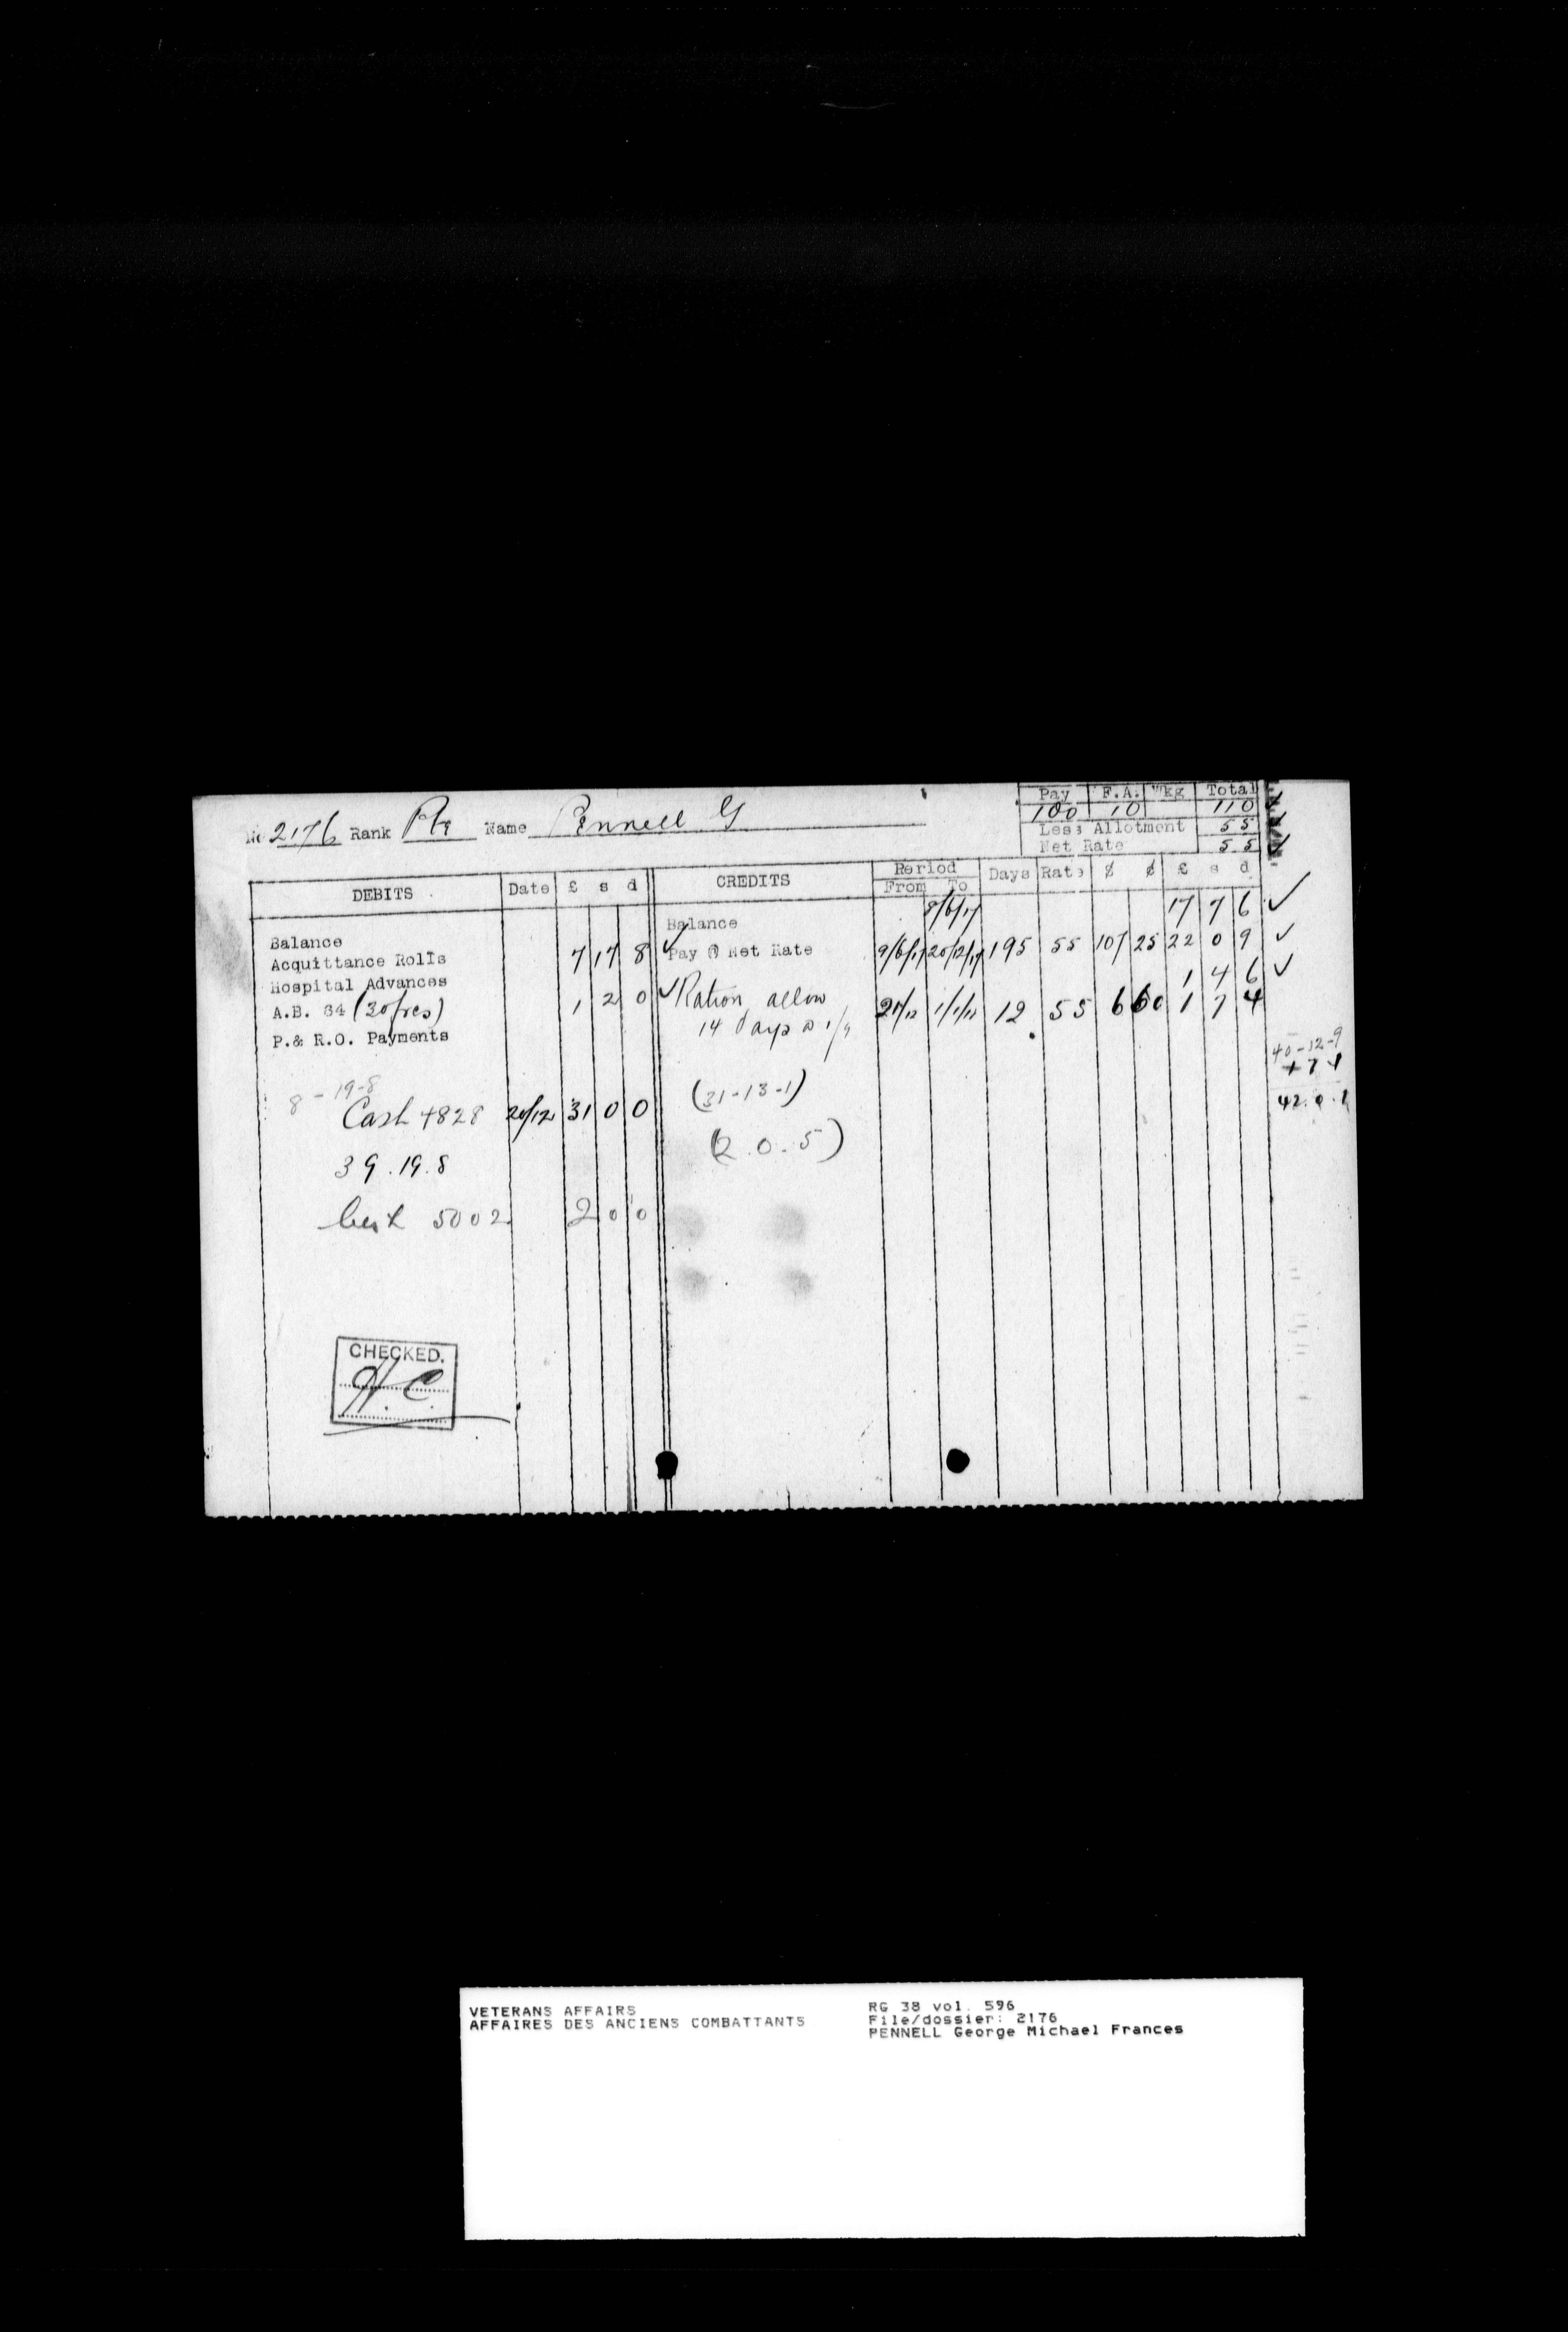 Pay F.A. Wkg Total
No 2176 Rank Pte Name Pennell G 100 10 110
Less Allotment 55
Net Rate 55
DEBITS Date £ s d CREDITS Period From To Days Rate $ ¢ £ s d
Balance Balance 8/6/17 17 7 6 ✓
Acquittance Rolls 7 17 8 ✓ Pay @ Net Rate 9/6/17 20/12/17 195 55 107 25 22 0 9 ✓
Hospital Advances 1 4 6 ✓
A.B. 64 (30 frcs) 1 2 0 ✓ Ration allow 21/12 1/1/18 12 55 6 60 1 7 4
P.& R.O. Payments 14 days @ 1/9
40-12-9
8-19-8 (31-13-1)
Cash 4828 20/12 31 0 0 42.0.1
39.19.8 (2.0.5)
5002 2 0 0
CHECKED.
H.C.
VETERANS AFFAIRS
AFFAIRES DES ANCIENS COMBATTANTS
RG 38 vol. 596
File/dossier: 2176
PENNELL George Michael Frances